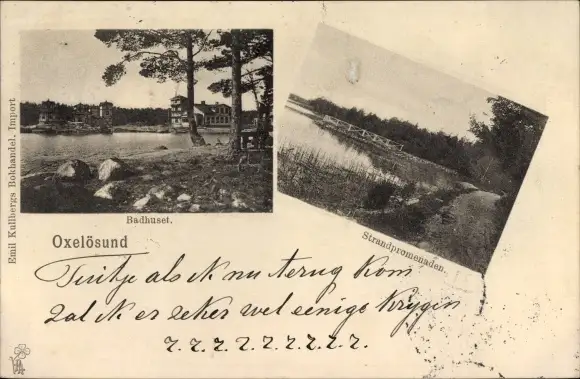 Emil Kullbergs Bokhandel. Import
Badhuset.
Strandpromenaden.
Oxelösund
als ik nu terug kom
Zal ik er zeker wel eenige krijgen